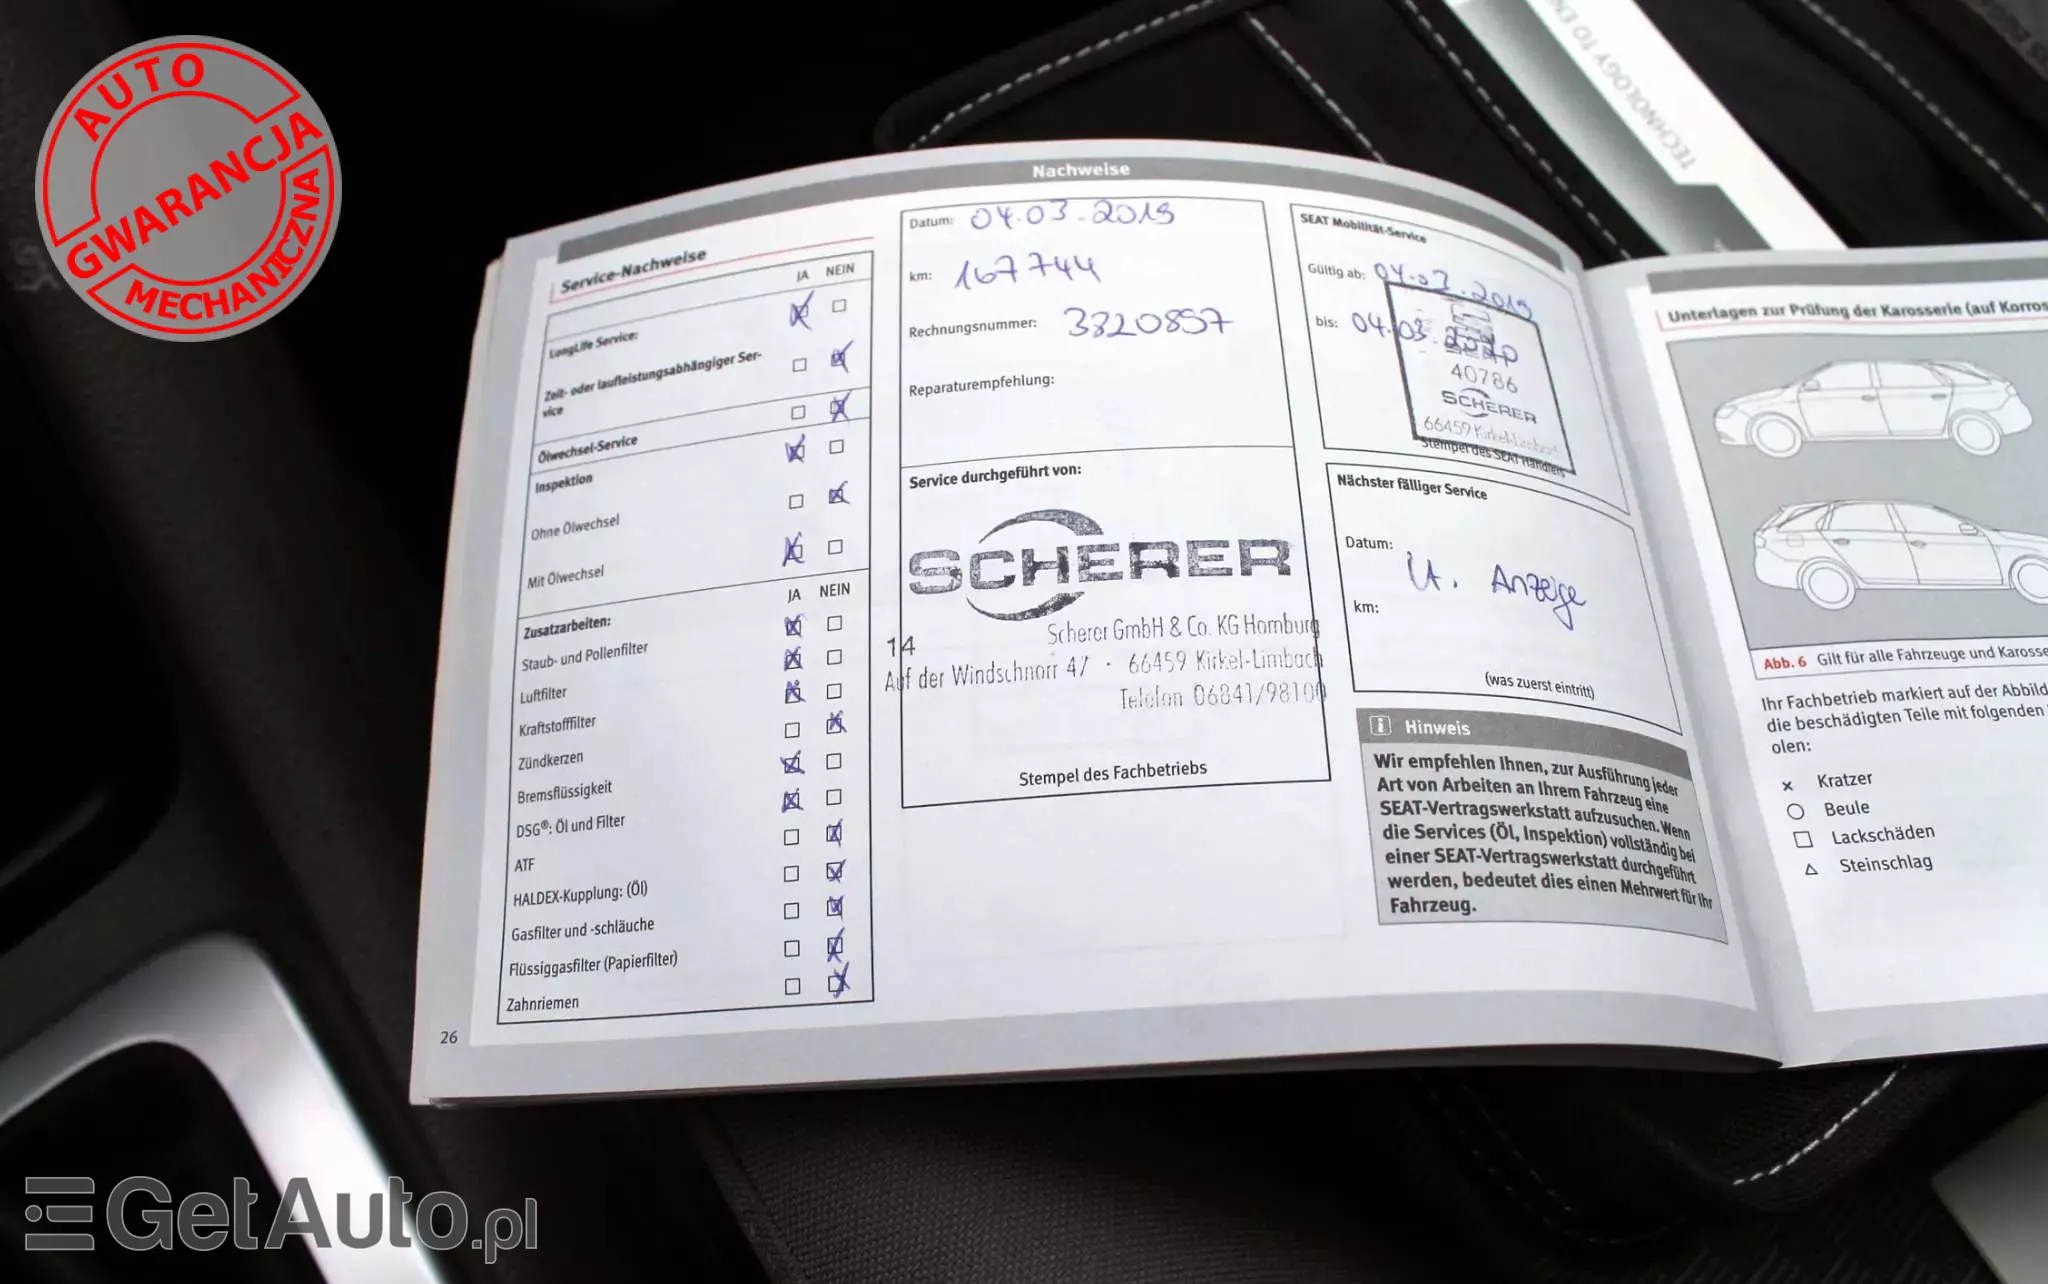 AUTO
GWARANCJA
MECHANICZNA
TECHNOLOGY TO EN
Nachweise
Service-Nachweise
JA NEIN
LongLife Service:
Zeit- oder laufleistungsabhängiger Ser-
vice
Ölwechsel-Service
Inspektion
Ohne Ölwechsel
Mit Ölwechsel
JA NEIN
Zusatzarbeiten:
Staub- und Pollenfilter
Luftfilter
Kraftstofffilter
Zündkerzen
Bremsflüssigkeit
DSG®: Öl und Filter
ATF
HALDEX-Kupplung: (Öl)
Gasfilter und -schläuche
Flüssiggasfilter (Papierfilter)
Zahnriemen
26
Datum: 04.03.2019
km: 167744
Rechnungsnummer: 3320857
Reparaturempfehlung:
Service durchgeführt von:
SCHERER
Scherer GmbH & Co. KG Homburg
14
Auf der Windschnorr 47 · 66459 Kirkel-Limbach
Telefon 06841/98100
Stempel des Fachbetriebs
SEAT Mobilität-Service
Gültig ab: 04.03.2019
bis: 04.03.2020
40786
SCHERER
66459 Kirkel-Limbach
Stempel des SEAT Händlers
Nächster fälliger Service
Datum:
lt. Anzeige
km:
(was zuerst eintritt)
i Hinweis
Wir empfehlen Ihnen, zur Ausführung jeder
Art von Arbeiten an Ihrem Fahrzeug eine
SEAT-Vertragswerkstatt aufzusuchen. Wenn
die Services (Öl, Inspektion) vollständig bei
einer SEAT-Vertragswerkstatt durchgeführt
werden, bedeutet dies einen Mehrwert für Ihr
Fahrzeug.
Unterlagen zur Prüfung der Karosserie (auf Korros
Abb. 6 Gilt für alle Fahrzeuge und Karosse
Ihr Fachbetrieb markiert auf der Abbild
die beschädigten Teile mit folgenden
olen:
x Kratzer
Beule
Lackschäden
Steinschlag
GetAuto.pl